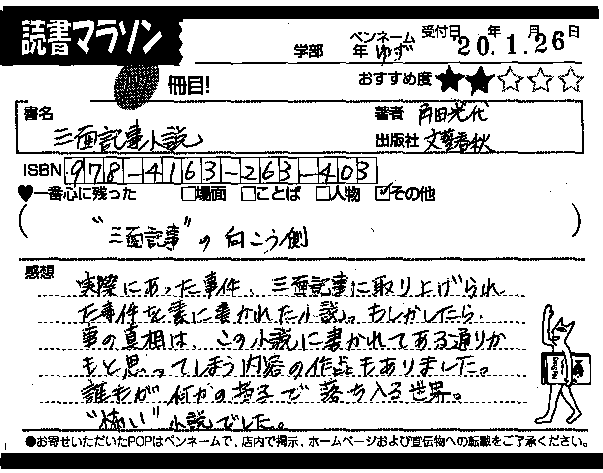 読書マラソン
学部 年 ペンネーム ゆず 受付日 20年1月26日
冊目! おすすめ度 ★★☆☆☆
書名 三面記事小説 著者 角田光代
出版社 文藝春秋
ISBN 978-4163-263-403
♥一番心に残った □場面 □ことば □人物 ☑その他
( "三面記事"の向こう側 )
感想
実際にあった事件、三面記事に取り上げられ
た事件を素に書かれた小説。もしかしたら、
事の真相は、この小説に書かれてある通りか
もと思ってしまう内容の作品もありました。
誰もが何かの拍子で落ち入る世界。
"怖い"小説でした。
●お寄せいただいたPOPはペンネームで、店内で掲示、ホームページおよび宣伝物への転載をご了承ください。